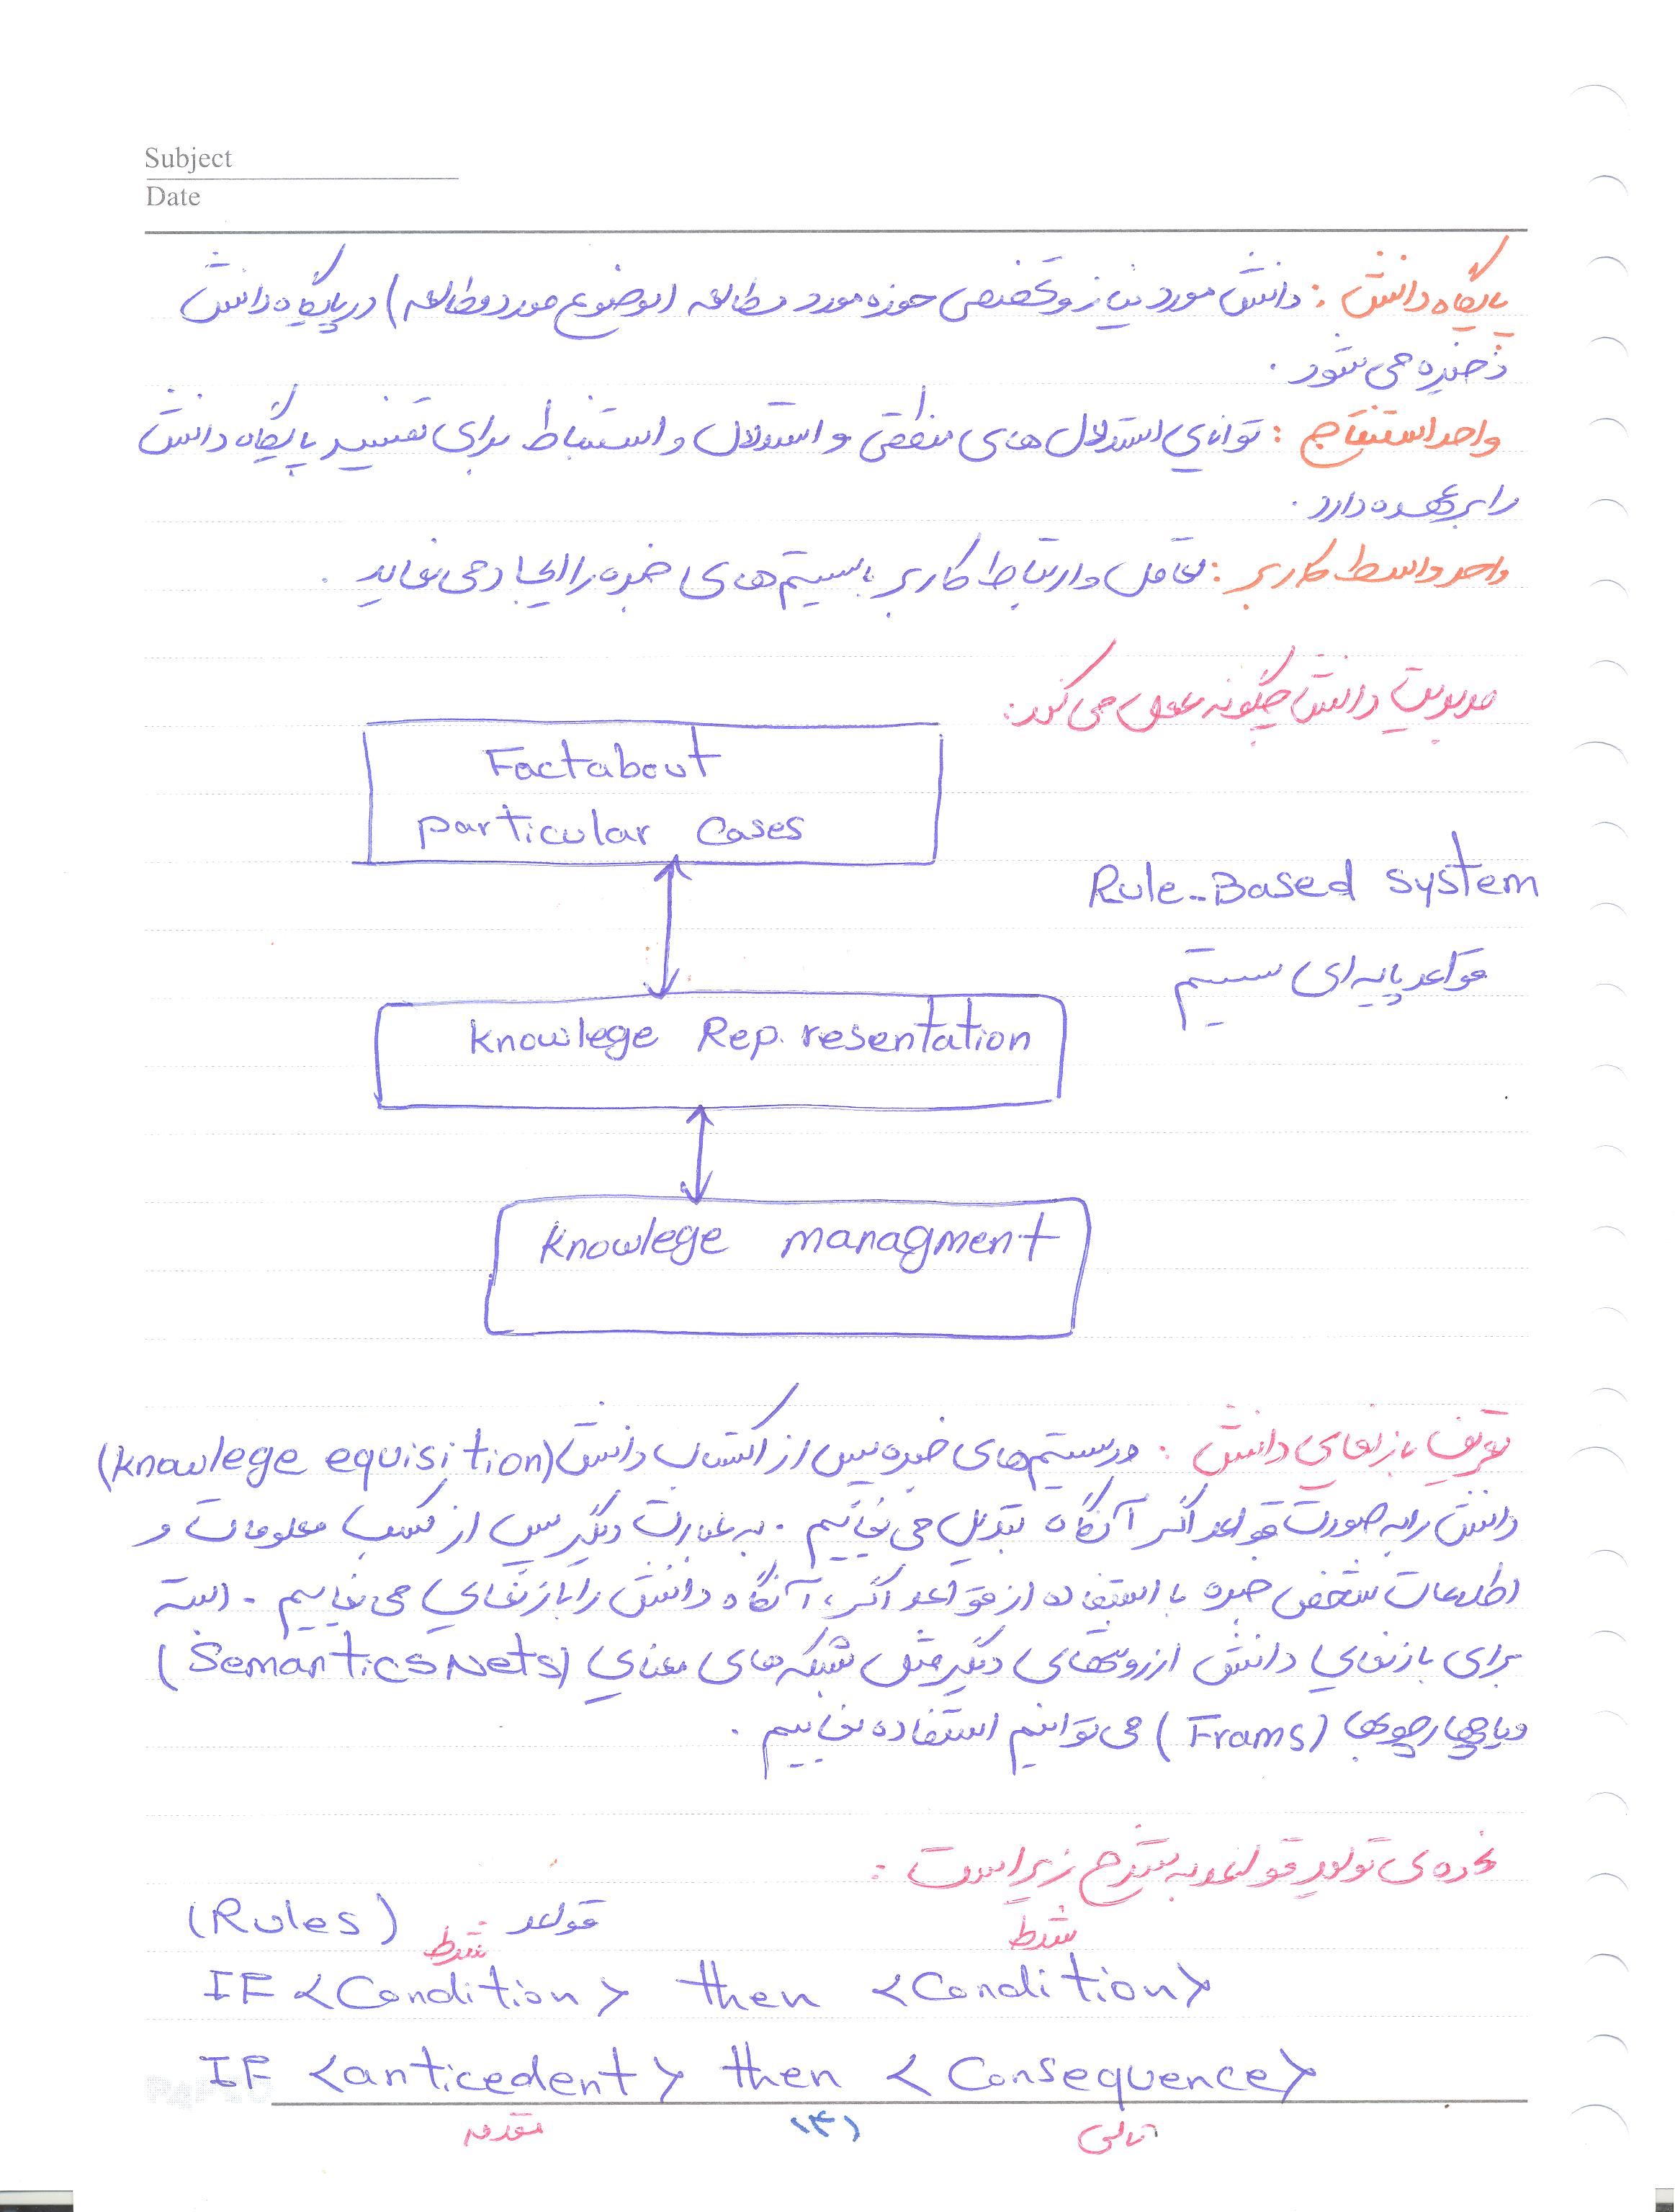 Subject
Date
پایگاه دانش : دانش مورد نیاز و تخصصی حوزه مورد مطالعه (موضوع مورد مطالعه) در پایگاه دانش
ذخیره می شود .
واحد استنتاج : توانایی استدلال های منطقی و استدلال و استنباط برای تفسیر پایگاه دانش
را بر عهده دارد .
واحد واسط کاربر : تعامل و ارتباط کاربر با سیستم های خبره را ایجاد می نماید .
مدیریت دانش چگونه عمل می کند :
Fact about
particular Cases
Rule-Based system
قواعد پایه ای سیستم
Knowlege Representation
Knowlege managment
تعریف بازنمایی دانش : در سیستم های خبره پس از اکتساب دانش (Knowlege equisition)
دانش را به صورت قواعد اگر آنگاه تبدیل می نمائیم . به عبارت دیگر پس از کسب معلومات و
اطلاعات شخص خبره با استفاده از قواعد اگر، آنگاه دانش را بازنمایی می نماییم . البته
برای بازنمایی دانش از روشهای دیگر مثل شبکه های معنایی (Semantics Nets)
و یا چهارچوبها (Frams) می توانیم استفاده نماییم .
نحوه ی تولید قواعد به شرح زیر است :
(Rules) قواعد
شرط شرط
IF <Condition> then <Condition>
IF <anticedent> then <Consequence>
مقدمه تالی
(۳)